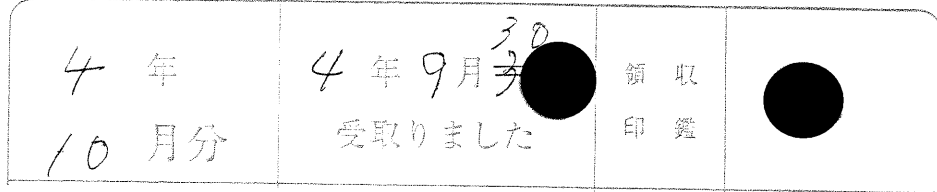 4年
10月分
30
4年9月
受取りました
領収
印鑑